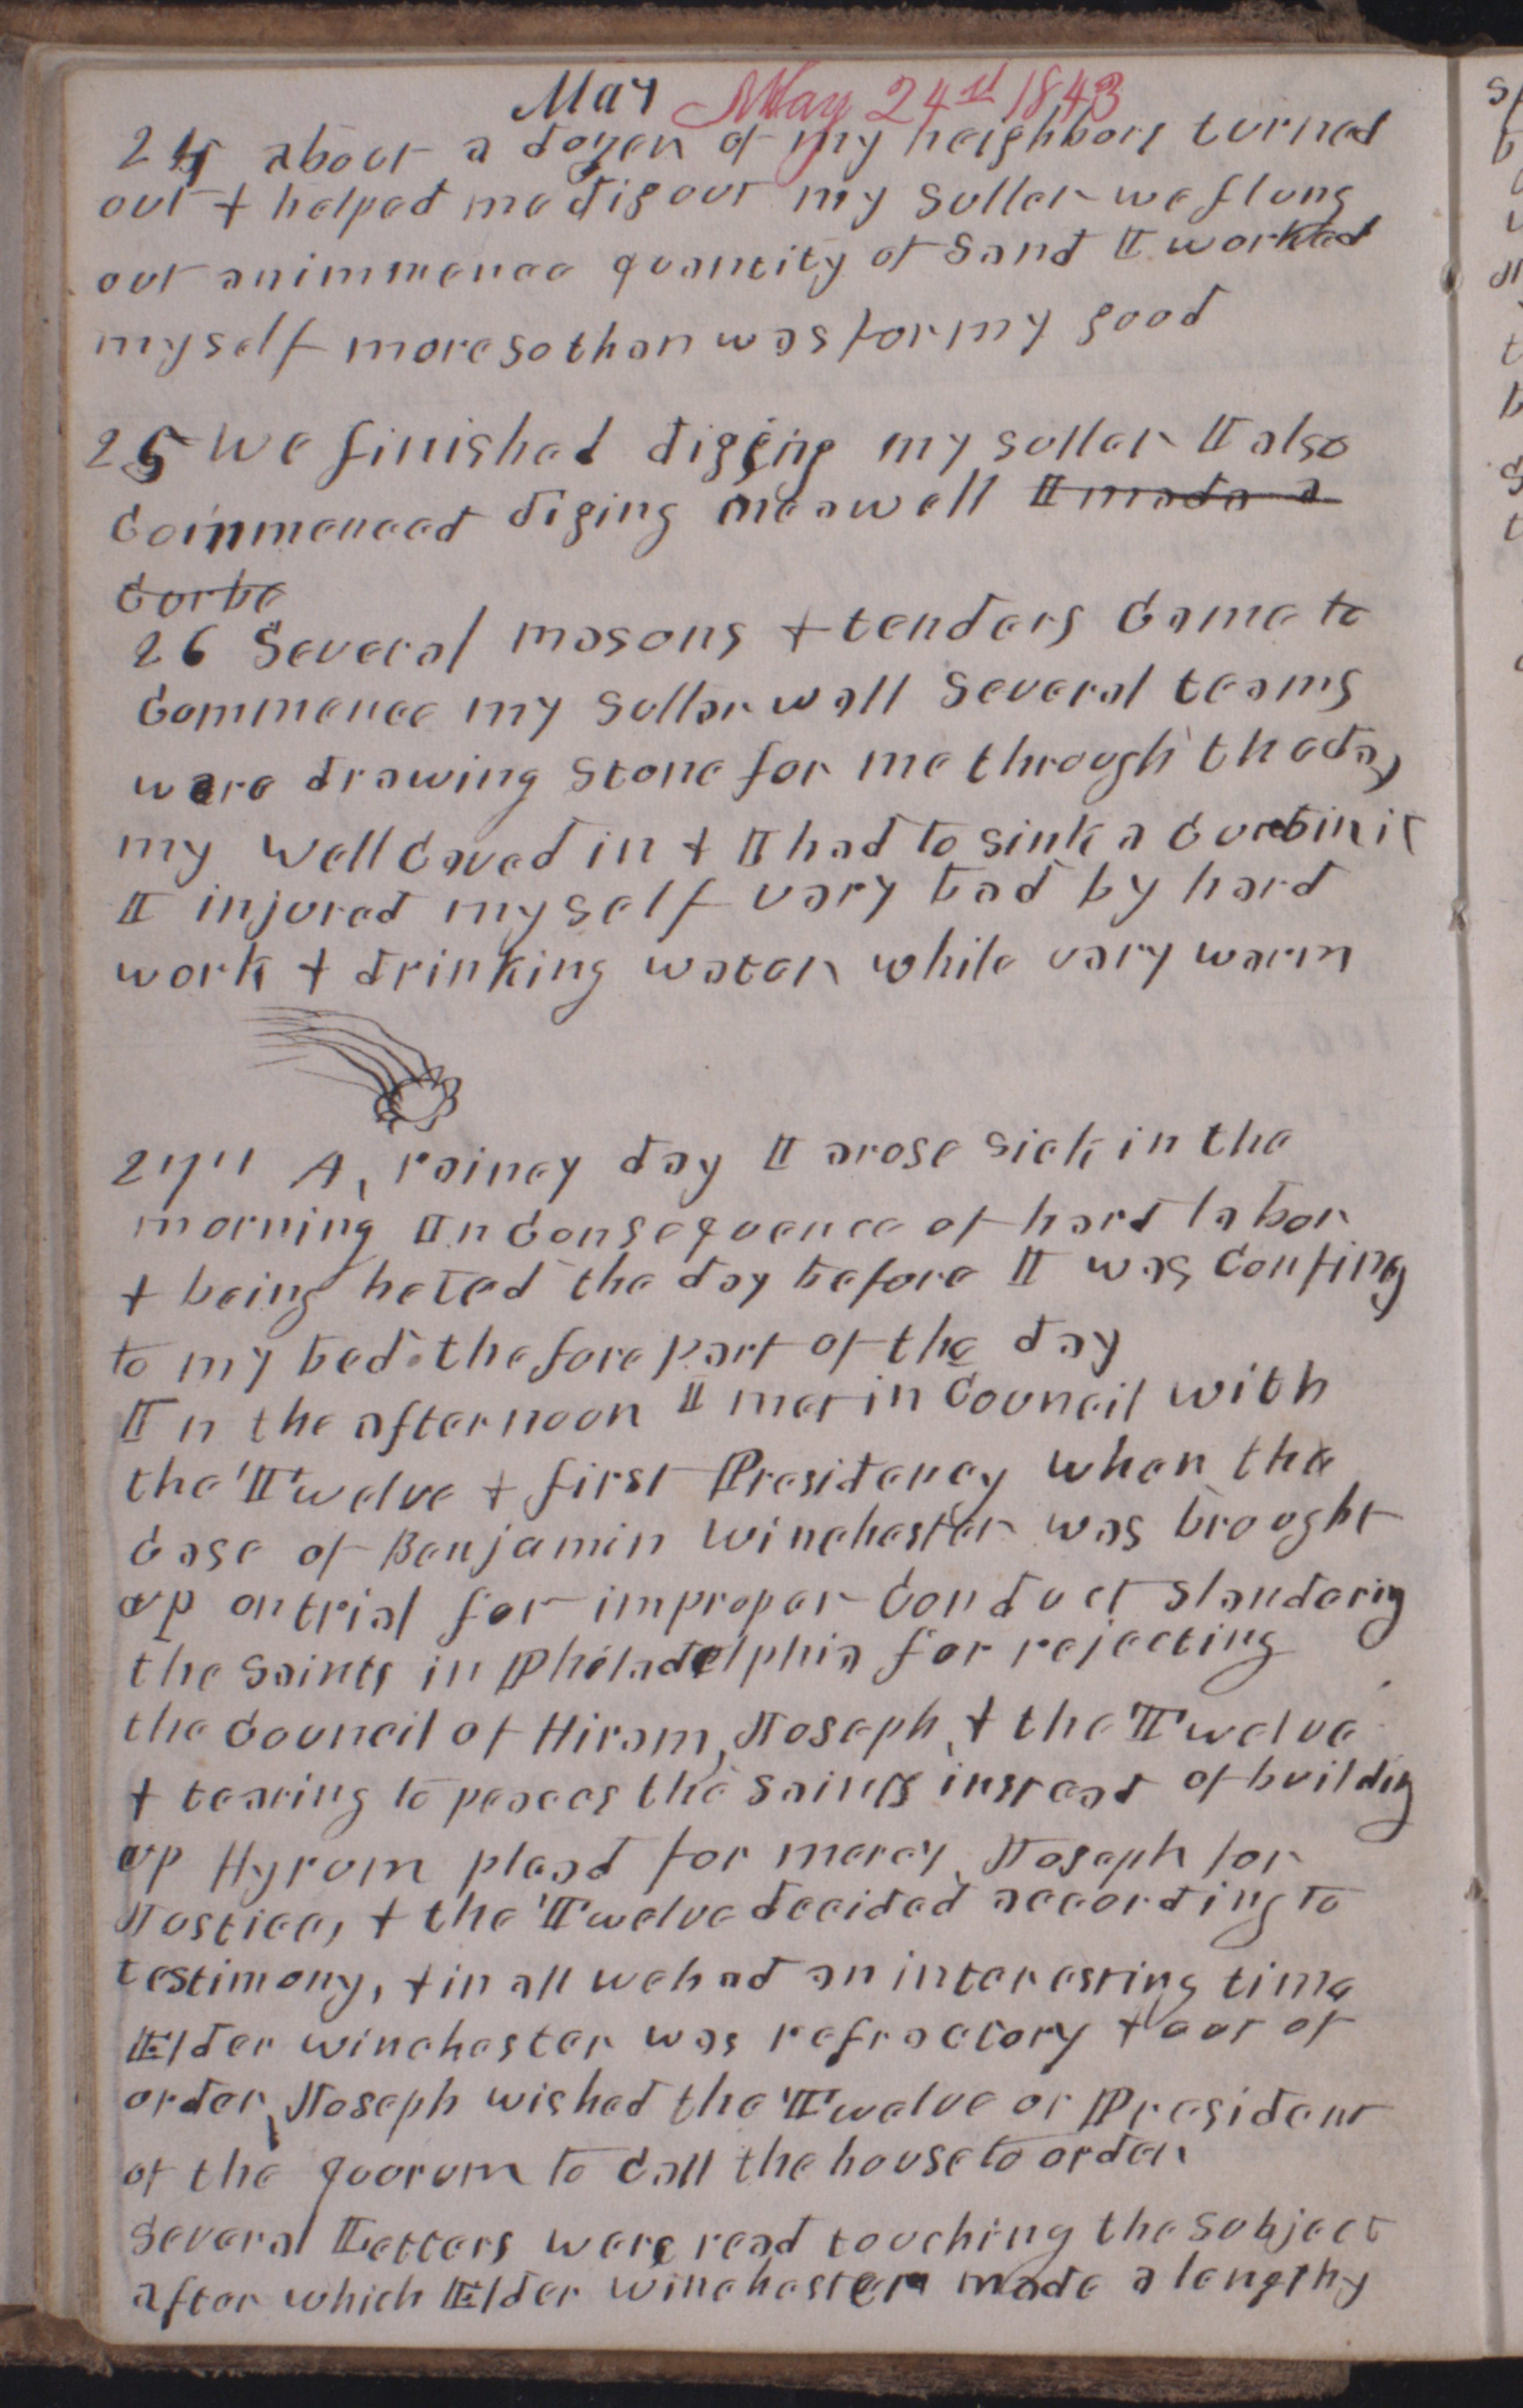 May May 24st 1843
24 about a dozen of my neighbors turned
out & helped me dig out my sullar we flung
out an immence quantity of sand I worked
myself more so than was for my good
25 We finished diging my sullar I also
Commenced diging me a well I made a
Corbe
26 Several masons & tenders Came to
Commence my sullar wall several teams
were drawing stone for me through the day
my well Caved in & I had to sink a Curb in it
I injured myself vary bad by hard
work & drinking water while vary warm
27" A, rainey day I arose sick in the
morning In Consequence of hard labor
& being heted the day before I was Confing
to my bed the fore part of the day
In the afternoon I met in Council with
the Twelve & first Presidency when the
Case of Benjamin Winchester was brought
up on trial for improper Conduct slandering
the Saints in Philadelphia for rejecting
the Council of Hiram, Joseph, & the Twelve
& tearing to peaces the Saints instead of building
up Hyrum plead for mercy, Joseph for
Justice, & the Twelve decided according to
testimony, & in all we had an interesting time
Elder winchester was refractory & out of
order, Joseph wished the Twelve or President
of the quorum to Call the house to order
Several Letters were read touching the subject
after which Elder Winchester made a lengthy